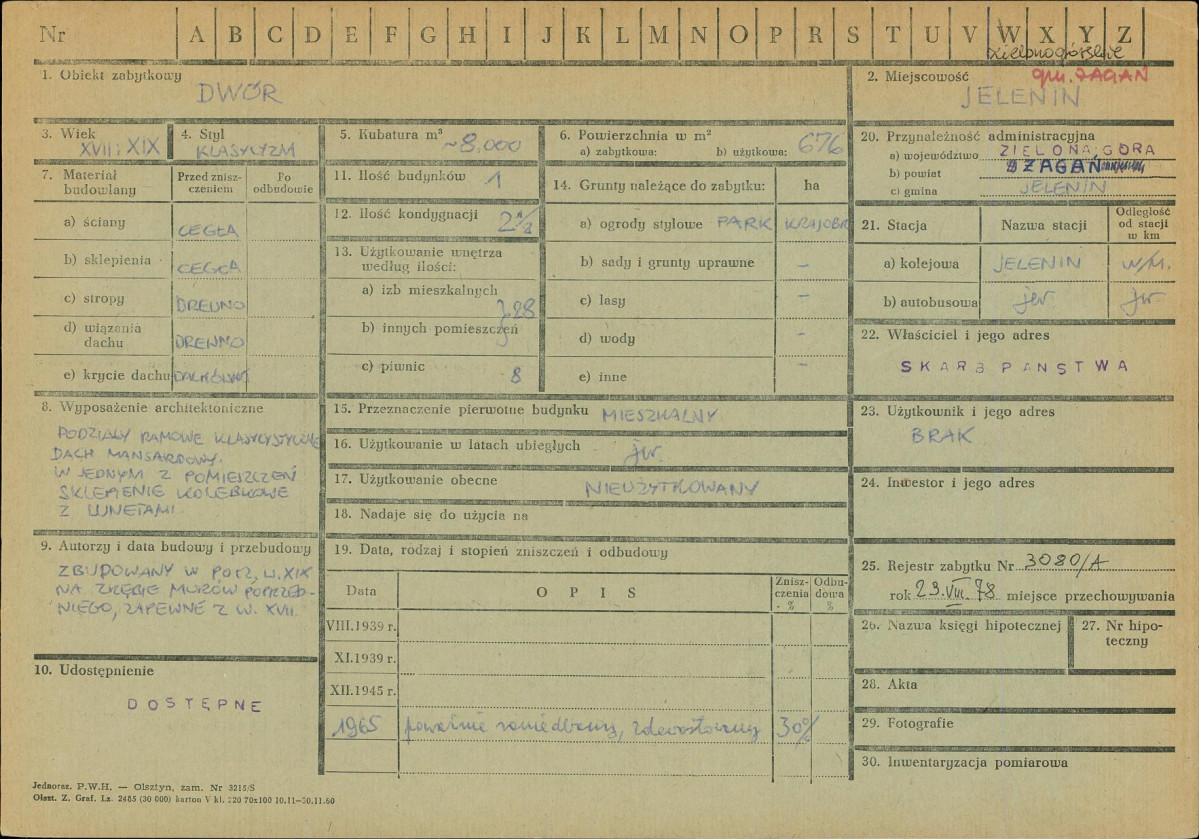 Nr A B C D E F G H I J K L M N O P R S T U V W X Y Z
zielonogórskie
1. Obiekt zabytkowy
DWÓR
2. Miejscowość
gm. ŻAGAŃ
JELENIN
3. Wiek
XVII i XIX
4. Styl
KLASYCYZM
5. Kubatura m³
~8.000
6. Powierzchnia w m²
a) zabytkowa: b) użytkowa: 676
7. Materiał budowlany
Przed zniszczeniem
Po odbudowie
a) ściany CEGŁA
b) sklepienia CEGŁA
c) stropy DREWNO
d) wiązania dachu DREWNO
e) krycie dachu DACHÓWKA
8. Wyposażenie architektoniczne
PODZIAŁY RAMOWE KLASYCYSTYCZNE
DACH MANSARDOWY.
W JEDNYM Z POMIESZCZEŃ
SKLEPIENIE KOLEBKOWE
Z LUNETAMI.
9. Autorzy i data budowy i przebudowy
ZBUDOWANY W POCZ. W. XIX
NA ZRĘBIE MURÓW POPRZED-
NIEGO, ZAPEWNE Z W. XVII.
10. Udostępnienie
DOSTĘPNE
11. Ilość budynków 1
12. Ilość kondygnacji 2 1/2
13. Użytkowanie wnętrza
według ilości:
a) izb mieszkalnych
} 28
b) innych pomieszczeń
c) piwnic 8
14. Grunty należące do zabytku: ha
a) ogrody stylowe PARK KRAJOBR
b) sady i grunty uprawne –
c) lasy –
d) wody –
e) inne
15. Przeznaczenie pierwotne budynku MIESZKALNY.
16. Użytkowanie w latach ubiegłych jw.
17. Użytkowanie obecne NIEUŻYTKOWANY
18. Nadaje się do użycia na
19. Data, rodzaj i stopień zniszczeń i odbudowy
Data
OPIS
Znisz-
czenia
%
Odbu-
dowa
%
VIII.1939 r.
XI.1939 r.
XII.1945 r.
1965 poważnie zaniedbany, zdewastowany 30%
20. Przynależność administracyjna
a) województwo ZIELONA GÓRA
b) powiat ŻAGAŃ
c) gmina JELENIN
21. Stacja
Nazwa stacji
Odległość
od stacji
w km
a) kolejowa JELENIN w/m.
b) autobusowa jw jw.
22. Właściciel i jego adres
SKARB PAŃSTWA
23. Użytkownik i jego adres
BRAK
24. Inwestor i jego adres
25. Rejestr zabytku Nr 3080/A
rok 23.VIII.78 miejsce przechowywania
26. Nazwa księgi hipotecznej
27. Nr hipo-
teczny
28. Akta
29. Fotografie
30. Inwentaryzacja pomiarowa
Jednoraz. P.W.H. — Olsztyn, zam. Nr 3215/S
Olszt. Z. Graf. Lz. 2485 (30 000) karton V kl. 220 70x100 10.11–30.11.60